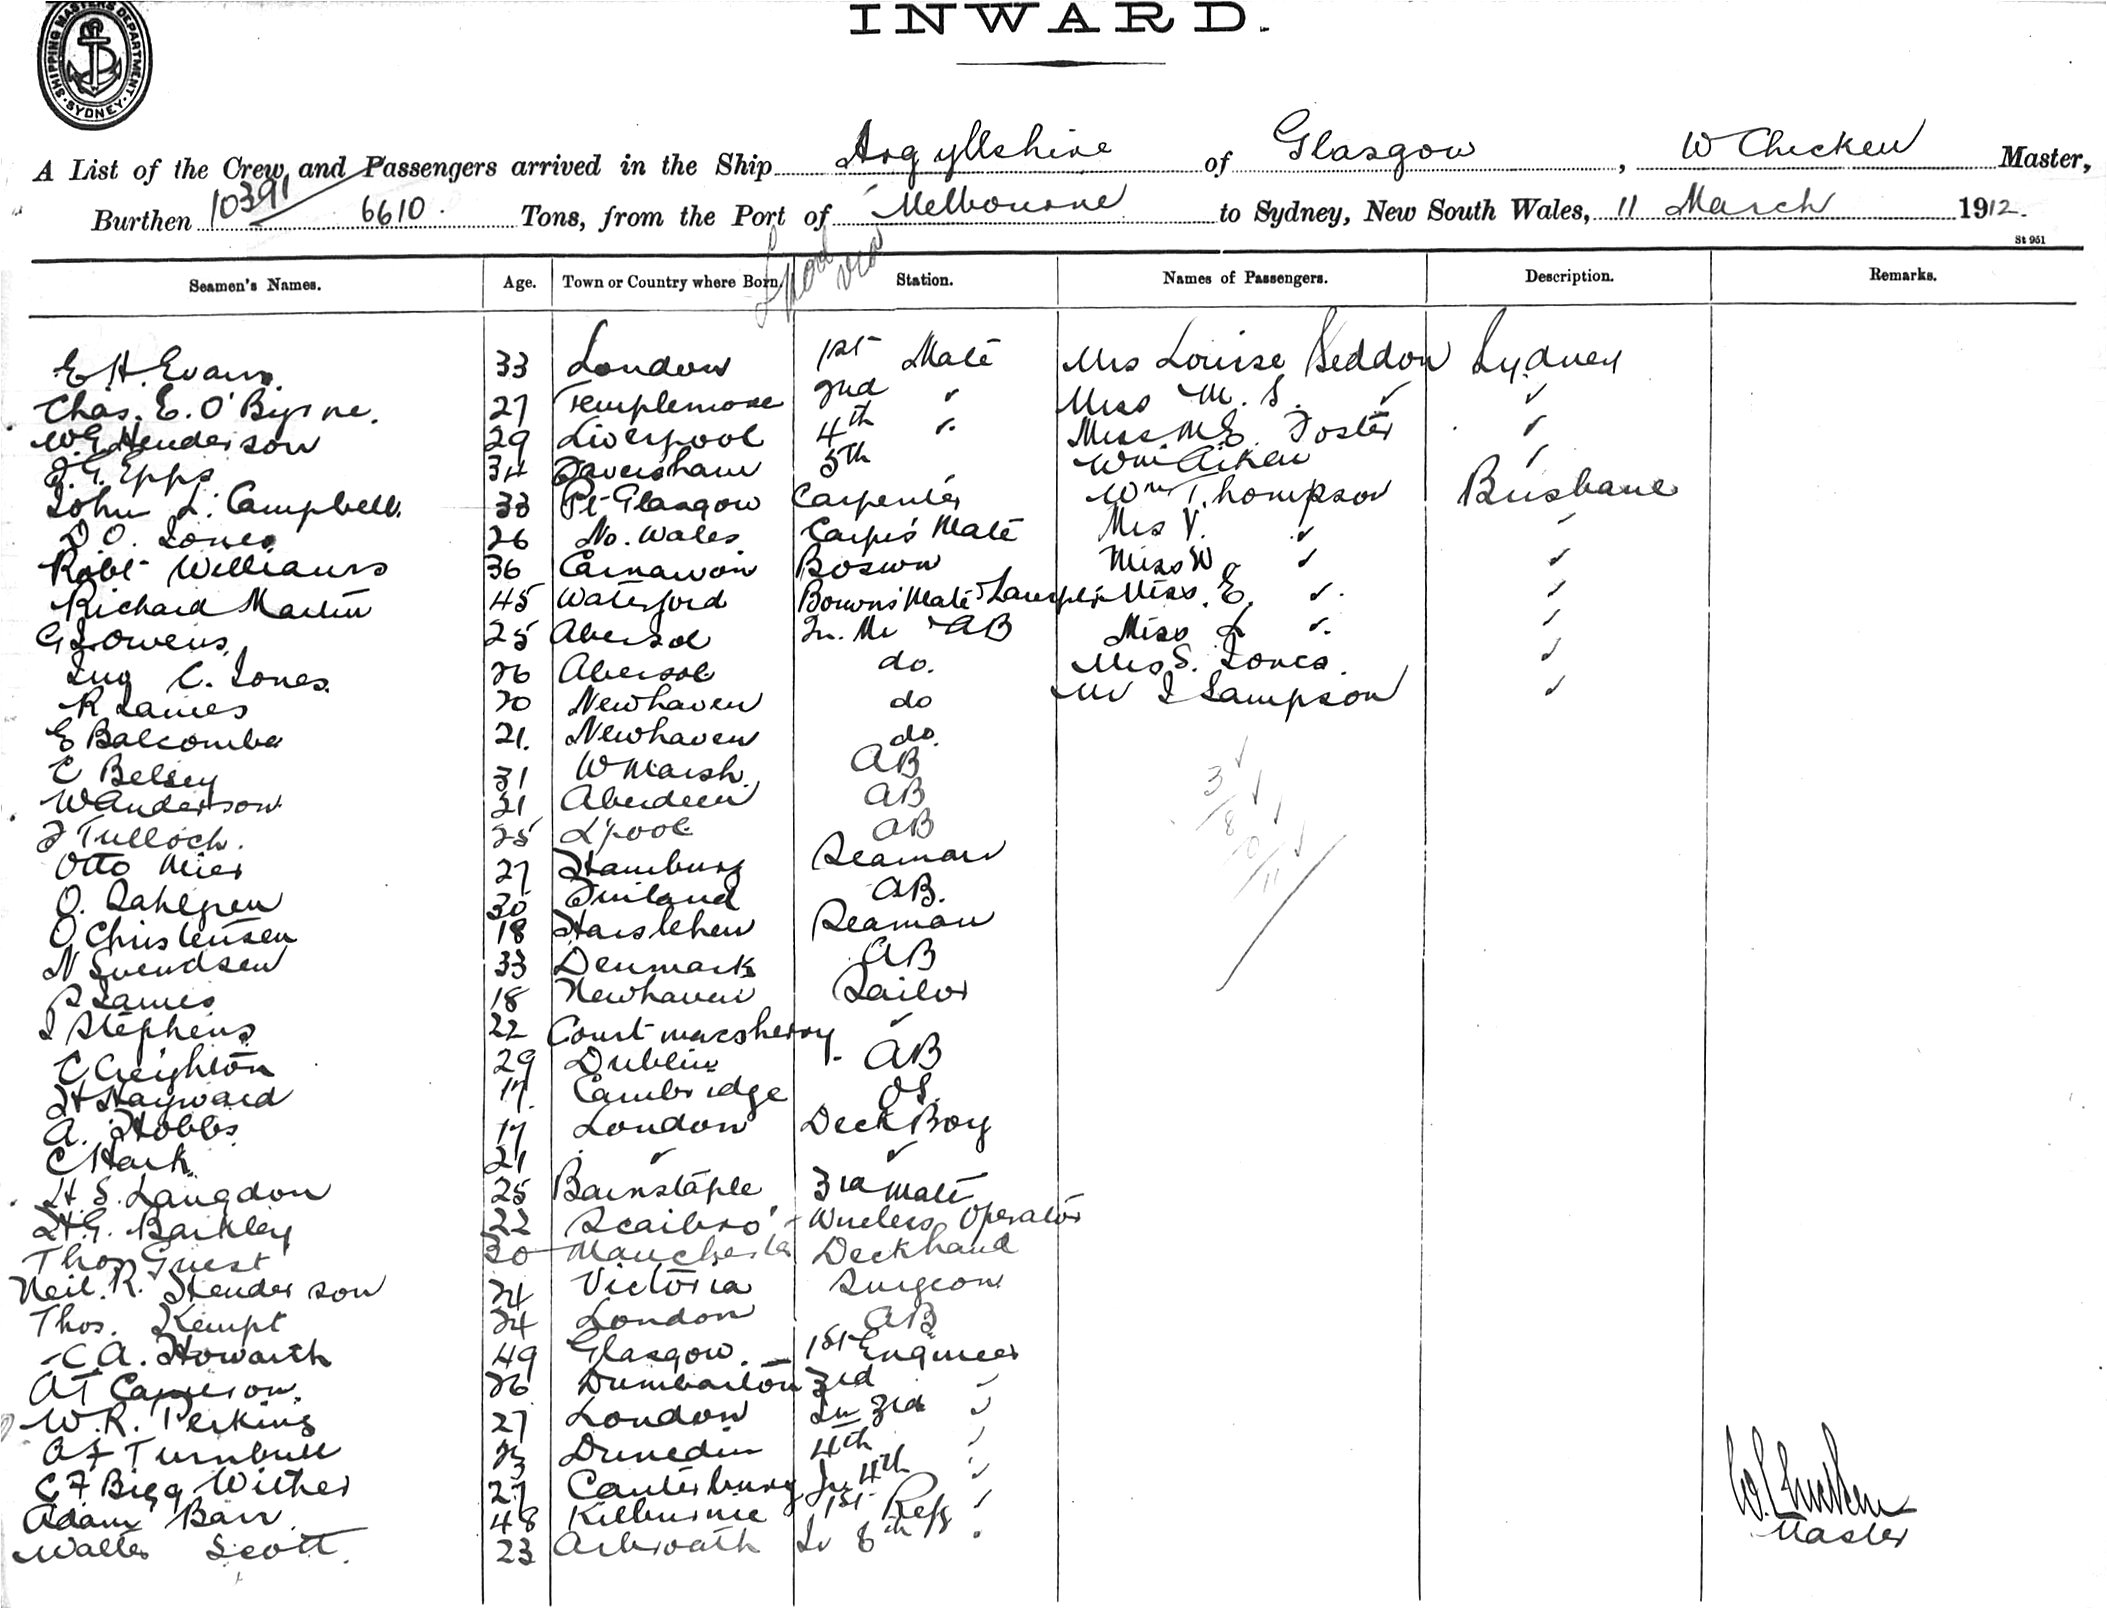 SHIPPING MASTERS DEPARTMENT. SYDNEY.
INWARD.
A List of the Crew and Passengers arrived in the Ship Argyllshire of Glasgow, W Chicken Master,
Burthen 10391 6610. Tons, from the Port of Melbourne to Sydney, New South Wales, 11 March 1912.
St 951
Seamen's Names. Age. Town or Country where Born. Station. Names of Passengers. Description. Remarks.
E. H. Evans. 33 London 1st Mate Mrs Louise Seddon Sydney
Chas. E. O'Byrne. 27 Templemore 2nd " Miss M. S. " "
W. E. Henderson 29 Liverpool 4th " Miss M E. Foster "
Epps 34 Faversham 5th Wm Aiken "
John L. Campbell. 33 Pt Glasgow Carpenter Wm Thompson Brisbane
D O. Jones 26 No. Wales Carps Mate Mrs V. " "
Robt Williams 36 Carnarvon Bosun Miss W. " "
Richard Martin 45 Waterford Bosuns Mate & Lamps Miss E. " "
Owens. 25 Abersoc AB Miss L " "
C. Jones. 26 Abersoc do. Mrs S. Jones. "
R James 20 Newhaven do Mr J Sampson "
E Balcombe 21. Newhaven do.
C Belsey 31 W Marsh. AB
W Anderson 21 Aberdeen AB
J Tulloch. 25 L'pool AB
Otto Mier 27 Hamburg Seaman
O. Dahlgren 30 Finland AB.
O Christensen 18 Seaman
N Svendsen 33 Denmark AB
James 18 Newhaven Sailor
J Stephens 22 Courtmacsherry "
C Creighton 29 Dublin AB
H Hayward 17. Cambridge OS.
A. Hobbs 17 London Deck Boy
C Hark 21 " "
H. S. Langdon 25 Barnstaple 3rd Mate
H. G. Barkley 22 Scarbro' Wireless Operator
Thos Guest 30 Manchester Deckhand
Neil. R. Henderson 24 Victoria Surgeon
Thos. Kempt 24 London AB
C. A. Howarth 49 Glasgow. 1st Engineer
A T Cameron. 26 Dumbarton 3rd "
W. R. Perkins 27 London Jn 3rd "
A F Turnbull 23 Dunedin 4th "
C F Bigg Wither 27 Canterbury Jn 4th "
Adam Barr. 48 Kilburnie 1st Refg "
Walter Scott. 23 Arbroath
3
8
0
11
W. Chicken
Master